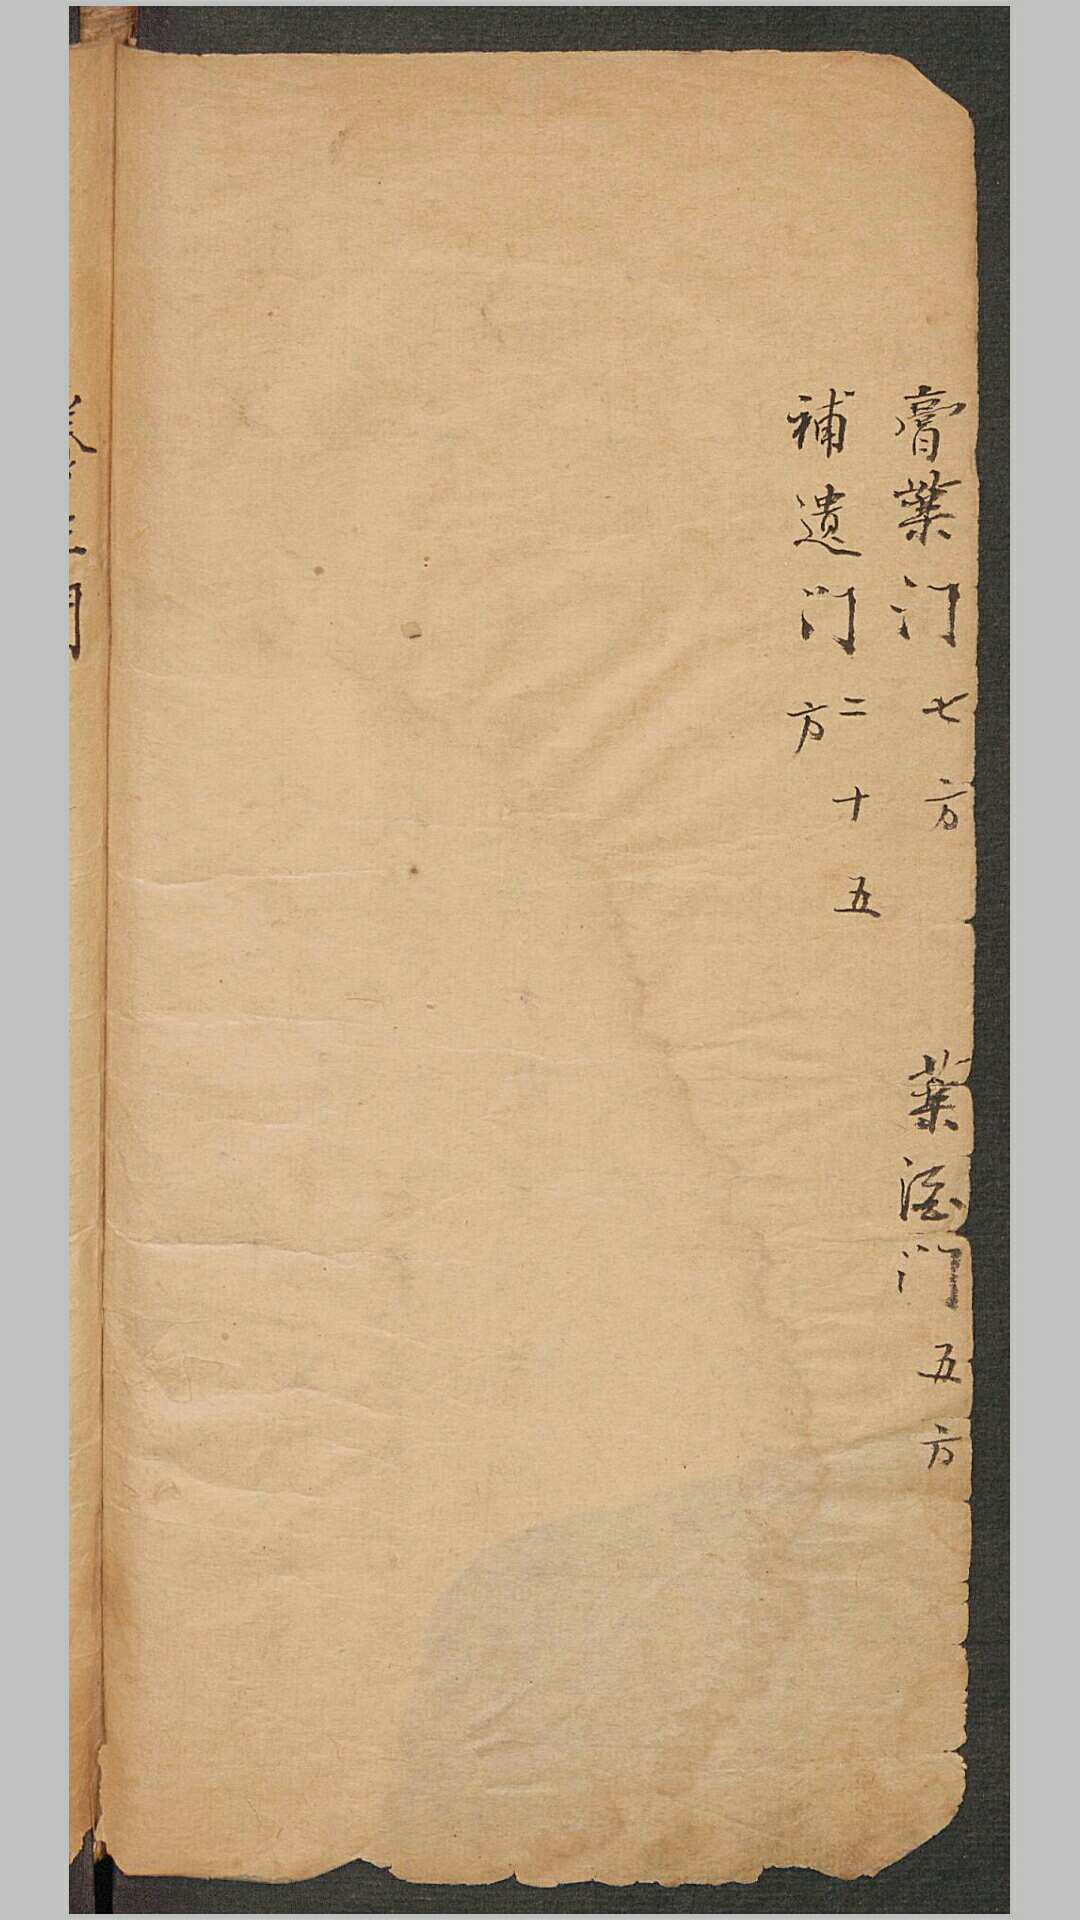 膏藥门 七方
藥酒门 五方
補遺门 二十五
方